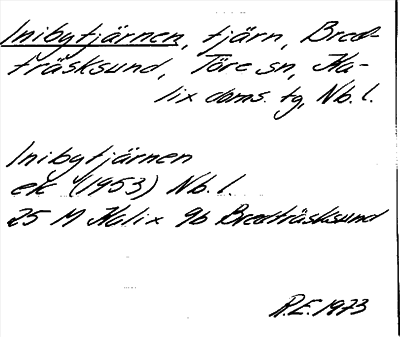 Inibytjärnen, tjärn, Bred-
träsksund, Töre sn, Ka-
lix doms. tg, Nb. l.
Inibytjärnen
ek (1953) Nb. l.
25 M Kalix 9b Bredträsksund
R.E. 1973